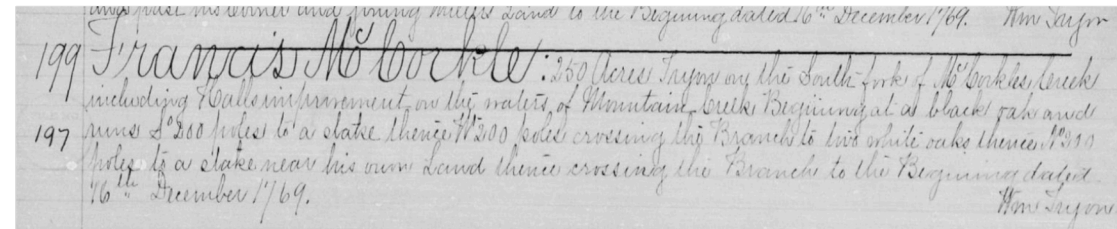 and past his corner and joining Millers Land to the Begining dated 16th December 1769. Wm Tryon
199 Francis McCorkle: 250 Acres Tryon on the South fork of McCorkles Creek
including Halls improvement on the waters of Mountain Creek Begining at a black oak and
197 runs So 200 poles to a stake thence W 200 poles crossing the Branch to two white oaks thence No 200
poles to a stake near his own Land thence crossing the Branch to the Begining dated
16th December 1769. Wm Tryon